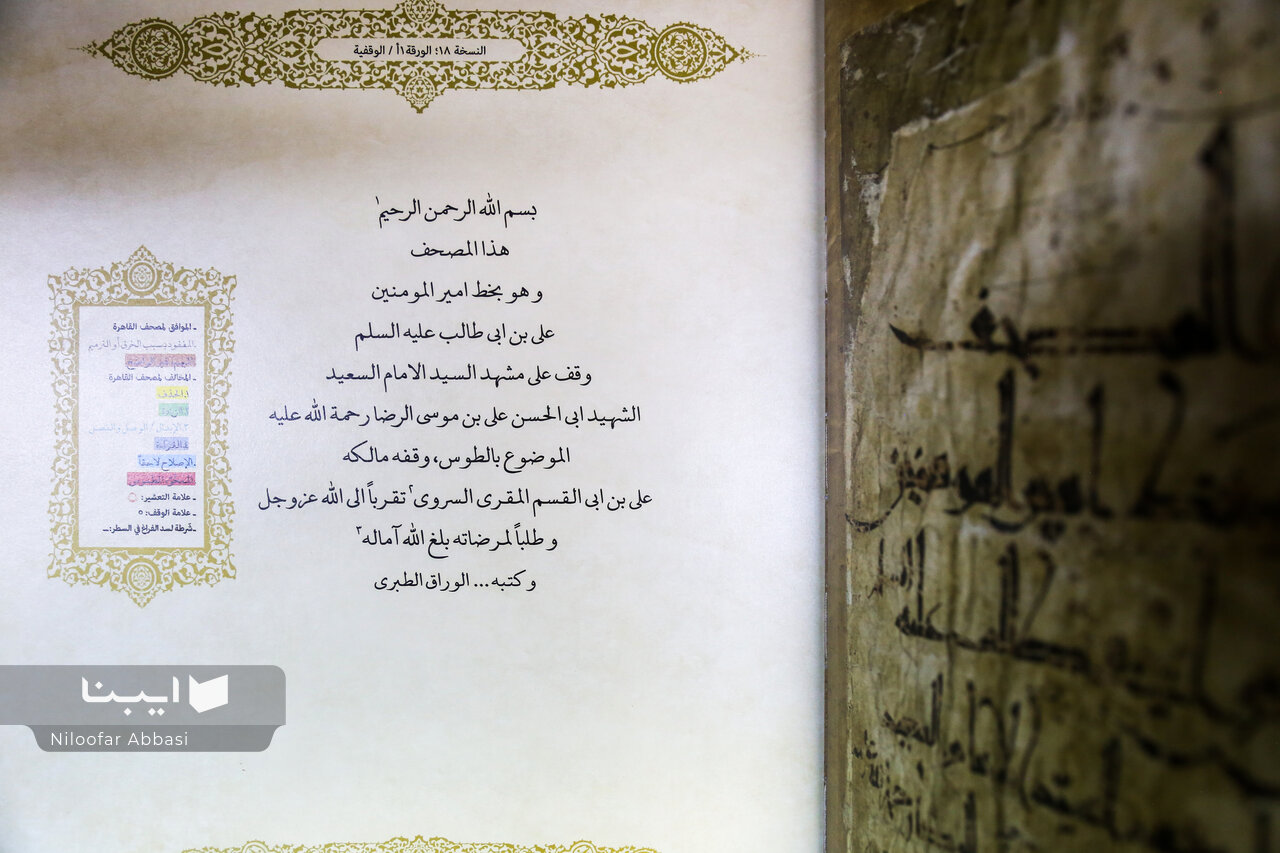 النسخة ١٨؛ الورقة ١أ / الوقفية
بسم الله الرحمن الرحيم١
هذا المصحف
و هو بخط امير المومنين
على بن ابى طالب عليه السلم
وقف على مشهد السيد الامام السعيد
الشهيد ابى الحسن على بن موسى الرضا رحمة الله عليه
الموضوع بالطوس، وقفه مالكه
على بن ابى القسم المقرى السروى٢ تقرباً الى الله عزوجل
و طلباً لمرضاته بلغ الله آماله٣
و كتبه ... الوراق الطبرى
ـ الموافق لمصحف القاهرة
ـ المفقود بسبب الخرق أو الترميم
ـ المخالف لمصحف القاهرة
في الحذف
في الزيادة
في القراءة
ـ الإصلاح لاحقاً
ـ علامة التعشير:
ـ علامة الوقف: ٥
ـ شرطة لسد الفراغ في السطر: ــ
ایبنا
Niloofar Abbasi
المصحف
بخط امير المومنين
طالب عليه السلم
الامام السعيد